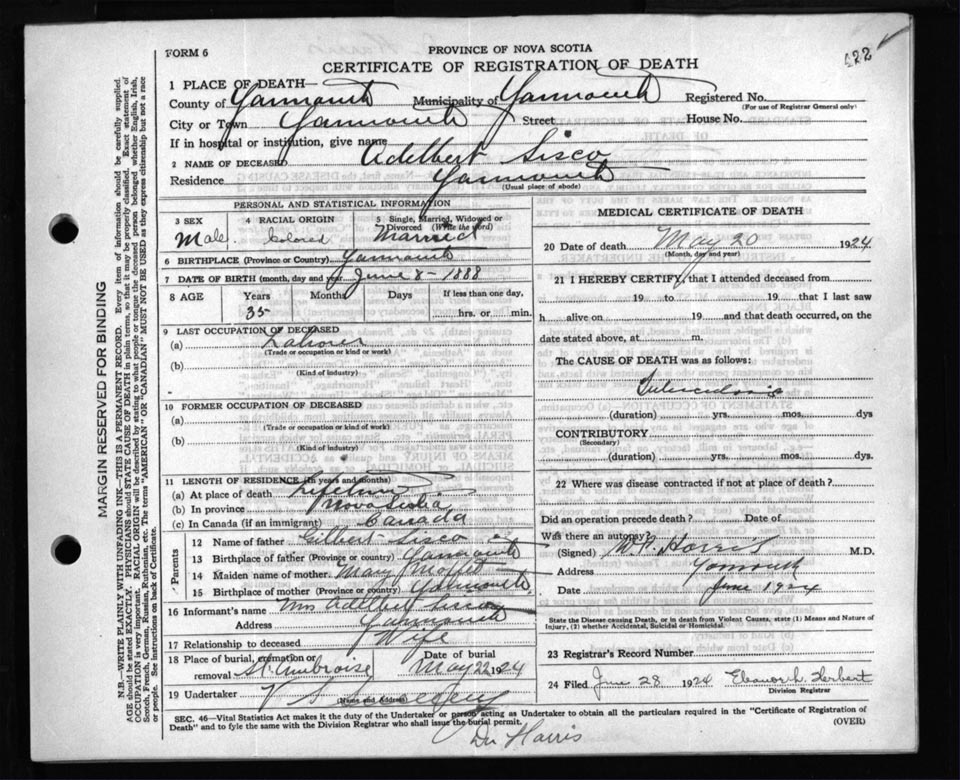 FORM 6
PROVINCE OF NOVA SCOTIA
CERTIFICATE OF REGISTRATION OF DEATH
122
1 PLACE OF DEATH—
County of Yarmouth Municipality of Yarmouth Registered No.
(For use of Registrar General only)
City or Town Yarmouth Street House No.
If in hospital or institution, give name
2 NAME OF DECEASED Adelbert Sisco
Residence Yarmouth
(Usual place of abode)
PERSONAL AND STATISTICAL INFORMATION
3 SEX 4 RACIAL ORIGIN 5 Single, Married, Widowed or Divorced (Write the word)
Male. Colored Married
6 BIRTHPLACE (Province or Country) Yarmouth
7 DATE OF BIRTH (month, day and year) June 8 - 1888
8 AGE Years Months Days If less than one day,
35 hrs. or min.
9 LAST OCCUPATION OF DECEASED
(a) Laborer
(Trade or occupation or kind of work)
(b)
(Kind of industry)
10 FORMER OCCUPATION OF DECEASED
(a)
(Trade or occupation or kind of work)
(b)
(Kind of industry)
11 LENGTH OF RESIDENCE (In years and months)
(a) At place of death Lifetime
(b) In province Nova Scotia
(c) In Canada (if an immigrant) Canada
Parents
12 Name of father Gilbert Sisco
13 Birthplace of father (Province or country) Yarmouth
14 Maiden name of mother Mary Moffet
15 Birthplace of mother (Province or country) Yarmouth
16 Informant's name Mrs Adelbert Sisco
Address Yarmouth
17 Relationship to deceased Wife
18 Place of burial, cremation or removal St. Ambroise Date of burial May 22 1924
19 Undertaker V S Sweeney
(Name and Address)
MEDICAL CERTIFICATE OF DEATH
20 Date of death May 20 1924
(Month, day and year)
21 I HEREBY CERTIFY, that I attended deceased from
19 to 19 that I last saw
h alive on 19 and that death occurred, on the
date stated above, at m,
The CAUSE OF DEATH was as follows:
Tuberculosis
(duration) yrs. mos. dys
CONTRIBUTORY
(Secondary)
(duration) yrs. mos. dys.
22 Where was disease contracted if not at place of death?
Did an operation precede death? Date of
Was there an autopsy?
(Signed) Harris M.D.
Address Yarmouth
Date June 1924
State the Disease causing Death, or in death from Violent Causes, state (1) Means and Nature of
Injury, (2) whether Accidental, Suicidal or Homicidal.
23 Registrar's Record Number
24 Filed June 28 1924 Herbert
Division Registrar
SEC. 46—Vital Statistics Act makes it the duty of the Undertaker or person acting as Undertaker to obtain all the particulars required in the "Certificate of Registration of
Death" and to fyle the same with the Division Registrar who shall issue the burial permit.
(OVER)
Dr Harris
MARGIN RESERVED FOR BINDING
N.B.—WRITE PLAINLY WITH UNFADING INK—THIS IS A PERMANENT RECORD. Every item of information should be carefully supplied.
AGE should be stated EXACTLY. PHYSICIANS should STATE CAUSE OF DEATH in plain terms, so that it may be properly classified. Exact statement of
OCCUPATION is very important. RACIAL ORIGIN will be described by stating to what people or tongue the deceased person belonged whether English, Irish,
Scotch, French, German, Russian, Ruthenian, etc. The terms "AMERICAN" OR "CANADIAN" MUST NOT BE USED as they express citizenship but not a race
or people. See instructions on back of Certificate.